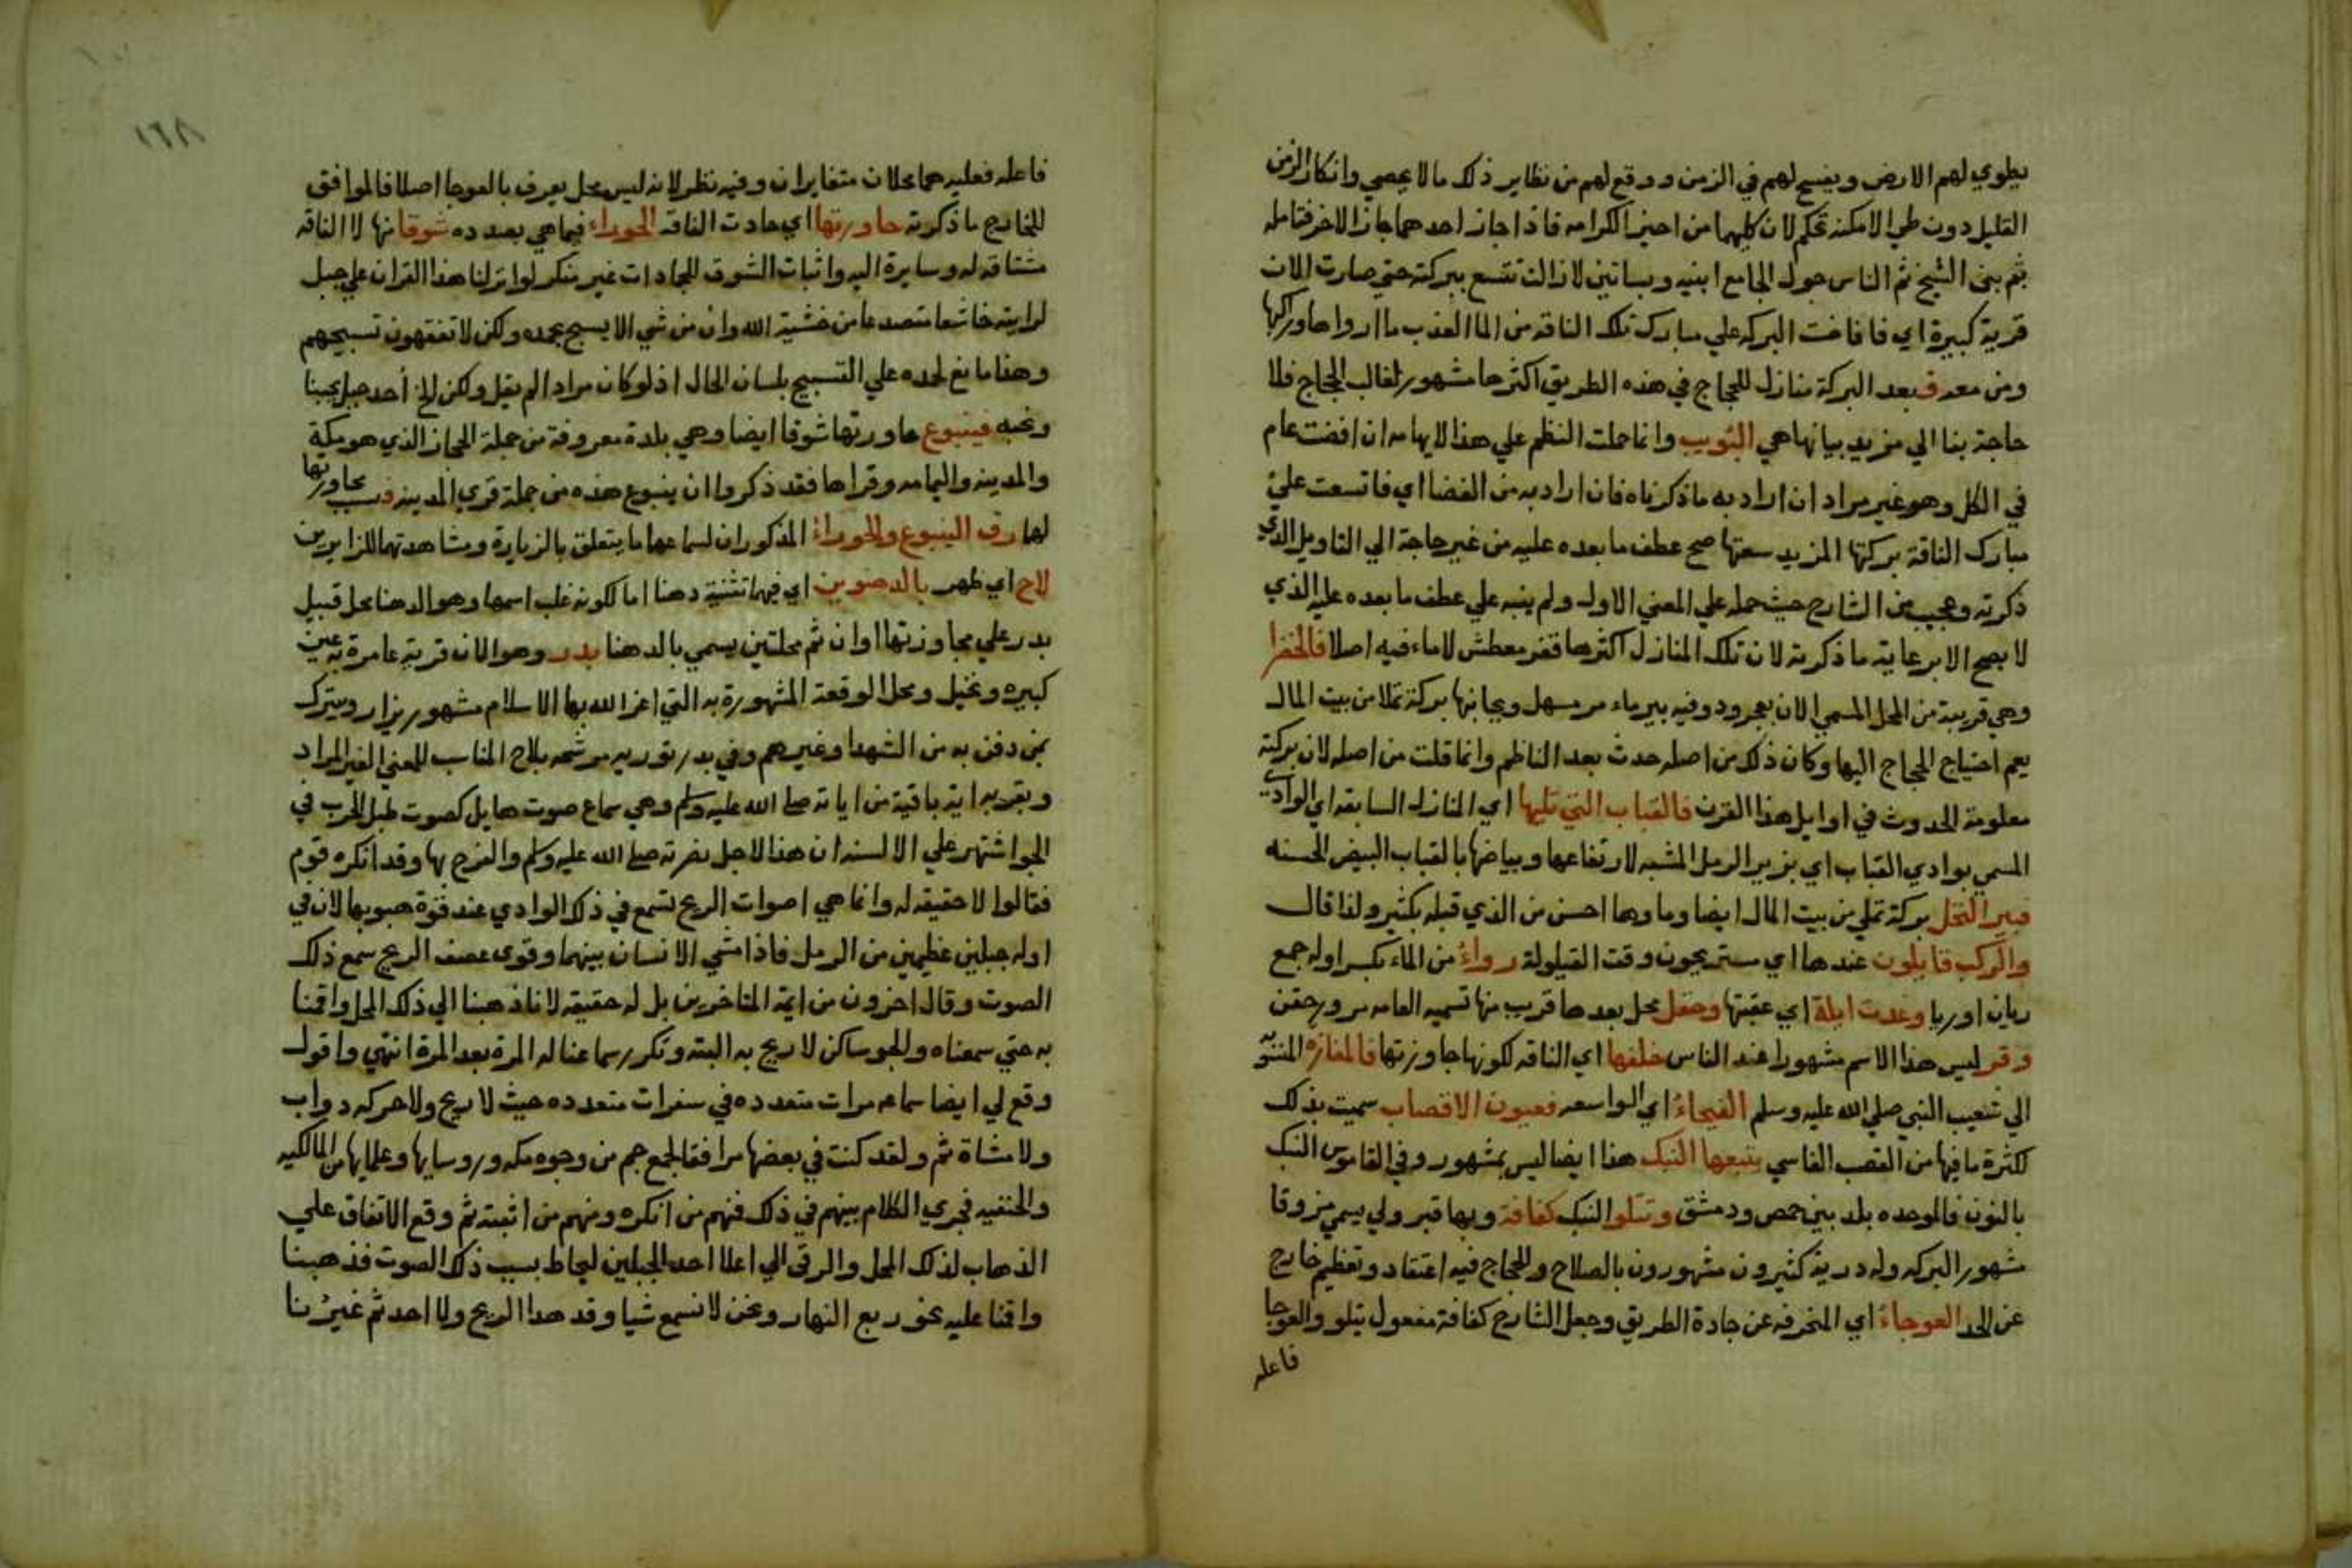 يطوي لهم الارض ويفسح لهم في الزمن ووقع لهم من نظاير ذلك ما لا يحصي وانكار الزمن
القليل دون طي الامكنه تحكم لان كليهما من احيز الكرامه فاذا جاز احدهما جاز الاخر فتامله
ثم بني الشيخ ثم الناس حول الجامع ابنيه وبساتين لازالت تتسع ببركته حتي صارت الان
قرية كبيرة اي فافاضت البركه علي مبارك تلك الناقه من الما العذب ما ارواها وركبها
ومن معه فبعد البركة منازل للحجاج في هذه الطريق اكثرها مشهور لغالب الحجاج فلا
حاجة بنا الي مزيد بيانها هي البويب وانما حملت النظم علي هذا لايهامه ان افضت عام
في الكل وهو غير مراد ان اراد به ما ذكرناه فان اراد به من الفضا اي فاتسعت علي
مبارك الناقة بركتها المزيد سعتها صح عطف ما بعده عليه من غير حاجة الي التاويل الذي
ذكرته وعجيب من الشارح حيث حمله علي المعني الاول ولم ينبه علي عطف ما بعده عليه الذي
لا يصح الا برعاية ما ذكرته لان تلك المنازل اكثرها قفر معطش لا ماء فيه اصلا فالخضرا
وهي قريبة من المحل المسمي الان بعجرود وفيه بير ماء مر مسهل وبجانبها بركة تملا من بيت المال
يعم احتياج الحجاج اليها وكان ذلك من اصله حدث بعد الناظم وانما قلت من اصله لان بركته
معلومة الحدوث في اوايل هذا القرن فالقباب التي تليها اي المنازل السابقه اي الوادي
المسمي بوادي القباب اي بزير الرمل المشبه لارتفاعها وبياضها بالقباب البيض الحسنه
فبير النخل بركة تملي من بيت المال ايضا وماوها احسن من الذي قبله بكثير ولذا قال
والركب قايلون عندها اي ستريحون وقت القيلولة رواء من الماء بكسر اوله جمع
ريان او ريا وغدت ايلة اي عقبتها وحقل محل بعدها قريب منها تسميه العامه مر ورحقن
وقر ليس هذا الاسم مشهورا عند الناس خلفها اي الناقه لكونها جاوزتها فالمغازه المنسوبه
الي شعيب النبي صلي الله عليه وسلم الفيحاء اي الواسعه فعيون الاقصاب سميت بذلك
لكثرة ما فيها من القصب الفاسي يتبعها النبك هذا ايضا ليس بمشهور وفي القاموس النبك
بالنون فالموحده بلد بين حمص ودمشق وتتلوا النبك كفافة وبها قبر ولي يسمي مزوقا
مشهور البركه وله درية كثيرون مشهورون بالصلاح وللحجاج فيه اعتقاد وتعظيم خارج
عن الحد العوجاء اي المنحرفه عن جادة الطريق وجعل الشارح كفافة مفعول يتلو والعوجا
فاعله
١٦٨
فاعله فعليه هما محلان متغايران وفيه نظر لانه ليس محل يعرف بالعوجا اصلا فالموافق
للخارج ما ذكرته حاورتها اي حادت الناقه الحوراء فيما هي بصدده شوقا نها لا الناقه
مشتاقه له وسايرة اليه واثبات الشوق للجادات غير منكر لو انزلنا هذا القران علي جبل
لرايته خاشعا متصدعا من خشية الله وان من شي الا يسبح بحمده ولكن لا تفقهون تسبيحهم
وهذا مانع لحده علي التسبيح بلسان الحال اذ لو كان مراد الم يقل ولكن لخ أحد جبل يحبنا
ونحبه فينبوع حاورتها شوقا ايضا وهي بلدة معروفة من جملة الحجاز الذي هو مكة
والمدينه واليمامه وقراها فقد ذكروا ان ينبوع هذه من جملة قري المدينه فبسبب محاورتها
لها رق الينبوع والحوراء المذكوران لسماعهما ما يتعلق بالزيارة ومشاهدتهما للزايرين
لاح اي ظهر بالدهنوين اي فيهما تثنية دهنا اما لكونه غلب اسمها وهو الدهنا محل قبيل
بدر علي مجاوزتها او ان ثم محلتين يسمي بالدهنا بدر وهو الان قرية عامرة به عين
كبيره ونخيل ومحل الوقعة المشهورة به التي اعز الله بها الاسلام مشهور يزار ويتبرك
بمن دفن به من الشهدا وغيرهم وفي بدر توريه مرشحه بلاح المناسب للمعني الغير المراد
وبقربه اية باقية من اياته صلي الله عليه وسلم وهي سماع صوت هايل كصوت طبل الحرب في
الجو اشتهر علي الالسنه ان هذا لاجل نصرته صلي الله عليه وسلم والفرح بها وقد انكره قوم
فقالوا لا حقيقه له وانما هي اصوات الريح تسمع في ذلك الوادي عند قوة هبوبها لان في
اوله جبلين عظيمين من الرمل فاذا مشي الانسان بينهما وقوي عصف الريح سمع ذلك
الصوت وقال اخرون من ايمة المتاخرين بل له حقيقه لانا ذهبنا الي ذلك المحل واقمنا
به حتي سمعناه والجو ساكن لا ريح به البته وتكرر سماعنا له المرة بعد المرة انتهي واقول
وقع لي ايضا سماعه مرات متعدده في سفرات متعدده حيث لا ريح ولا حركه دواب
ولا مشاة ثم ولقد كنت في بعضها مرافقا لجمع جم من وجوه مكه وروسايها وعلمايها من المالكيه
والحنفيه فجري الكلام بينهم في ذلك فمنهم من انكره ومنهم من اثبته ثم وقع الاتفاق علي
الذهاب لذلك المحل والرقي الي اعلا احد الجبلين ليحاط بسبب ذلك الصوت فذهبنا
واقنا عليه نحو ربع النهار ونحن لا نسمع شيا وقد هدا الريح ولا احد ثم غيرنا